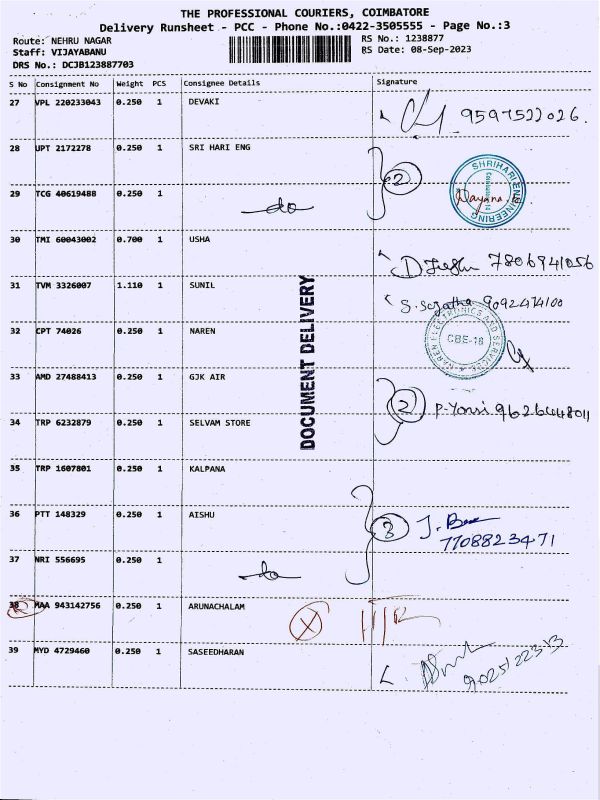 THE PROFESSIONAL COURIERS, COIMBATORE
Delivery Runsheet - PCC - Phone No.:0422-3505555 - Page No.:3
Route: NEHRU NAGAR RS No.: 1238877
Staff: VIJAYABANU RS Date: 08-Sep-2023
DRS No.: DCJB123887703
S No Consignment No Weight PCS Consignee Details Signature
27 VPL 220233043 0.250 1 DEVAKI 9597522026.
28 UPT 2172278 0.250 1 SRI HARI ENG 2
SHRIHARI ENGINEERING
Nayana
29 TCG 40619488 0.250 1 do
30 TMI 60043002 0.700 1 USHA 7806941056
31 TVM 3326007 1.110 1 SUNIL S. Sujatha 9092474100
32 CPT 74026 0.250 1 NAREN
NAREN ELECTRONICS AND SERVICES CBE-18
33 AMD 27488413 0.250 1 GJK AIR 2 9626448011
34 TRP 6232879 0.250 1 SELVAM STORE
DOCUMENT DELIVERY
35 TRP 1607801 0.250 1 KALPANA
36 PTT 148329 0.250 1 AISHU 3 7708823471
37 NRI 556695 0.250 1 do
38 MAA 943142756 0.250 1 ARUNACHALAM X
39 MYD 4729460 0.250 1 SASEEDHARAN 9025122313